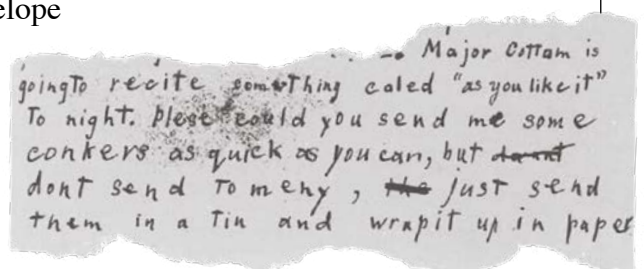 elope
Major Cottam is
going To recite something caled "as you like it"
To night. Plese could you send me some
conkers as quick as you can, but d̶o̶n̶t̶
dont send To meny, t̶h̶e̶ just send
them in a Tin and wrap it up in paper